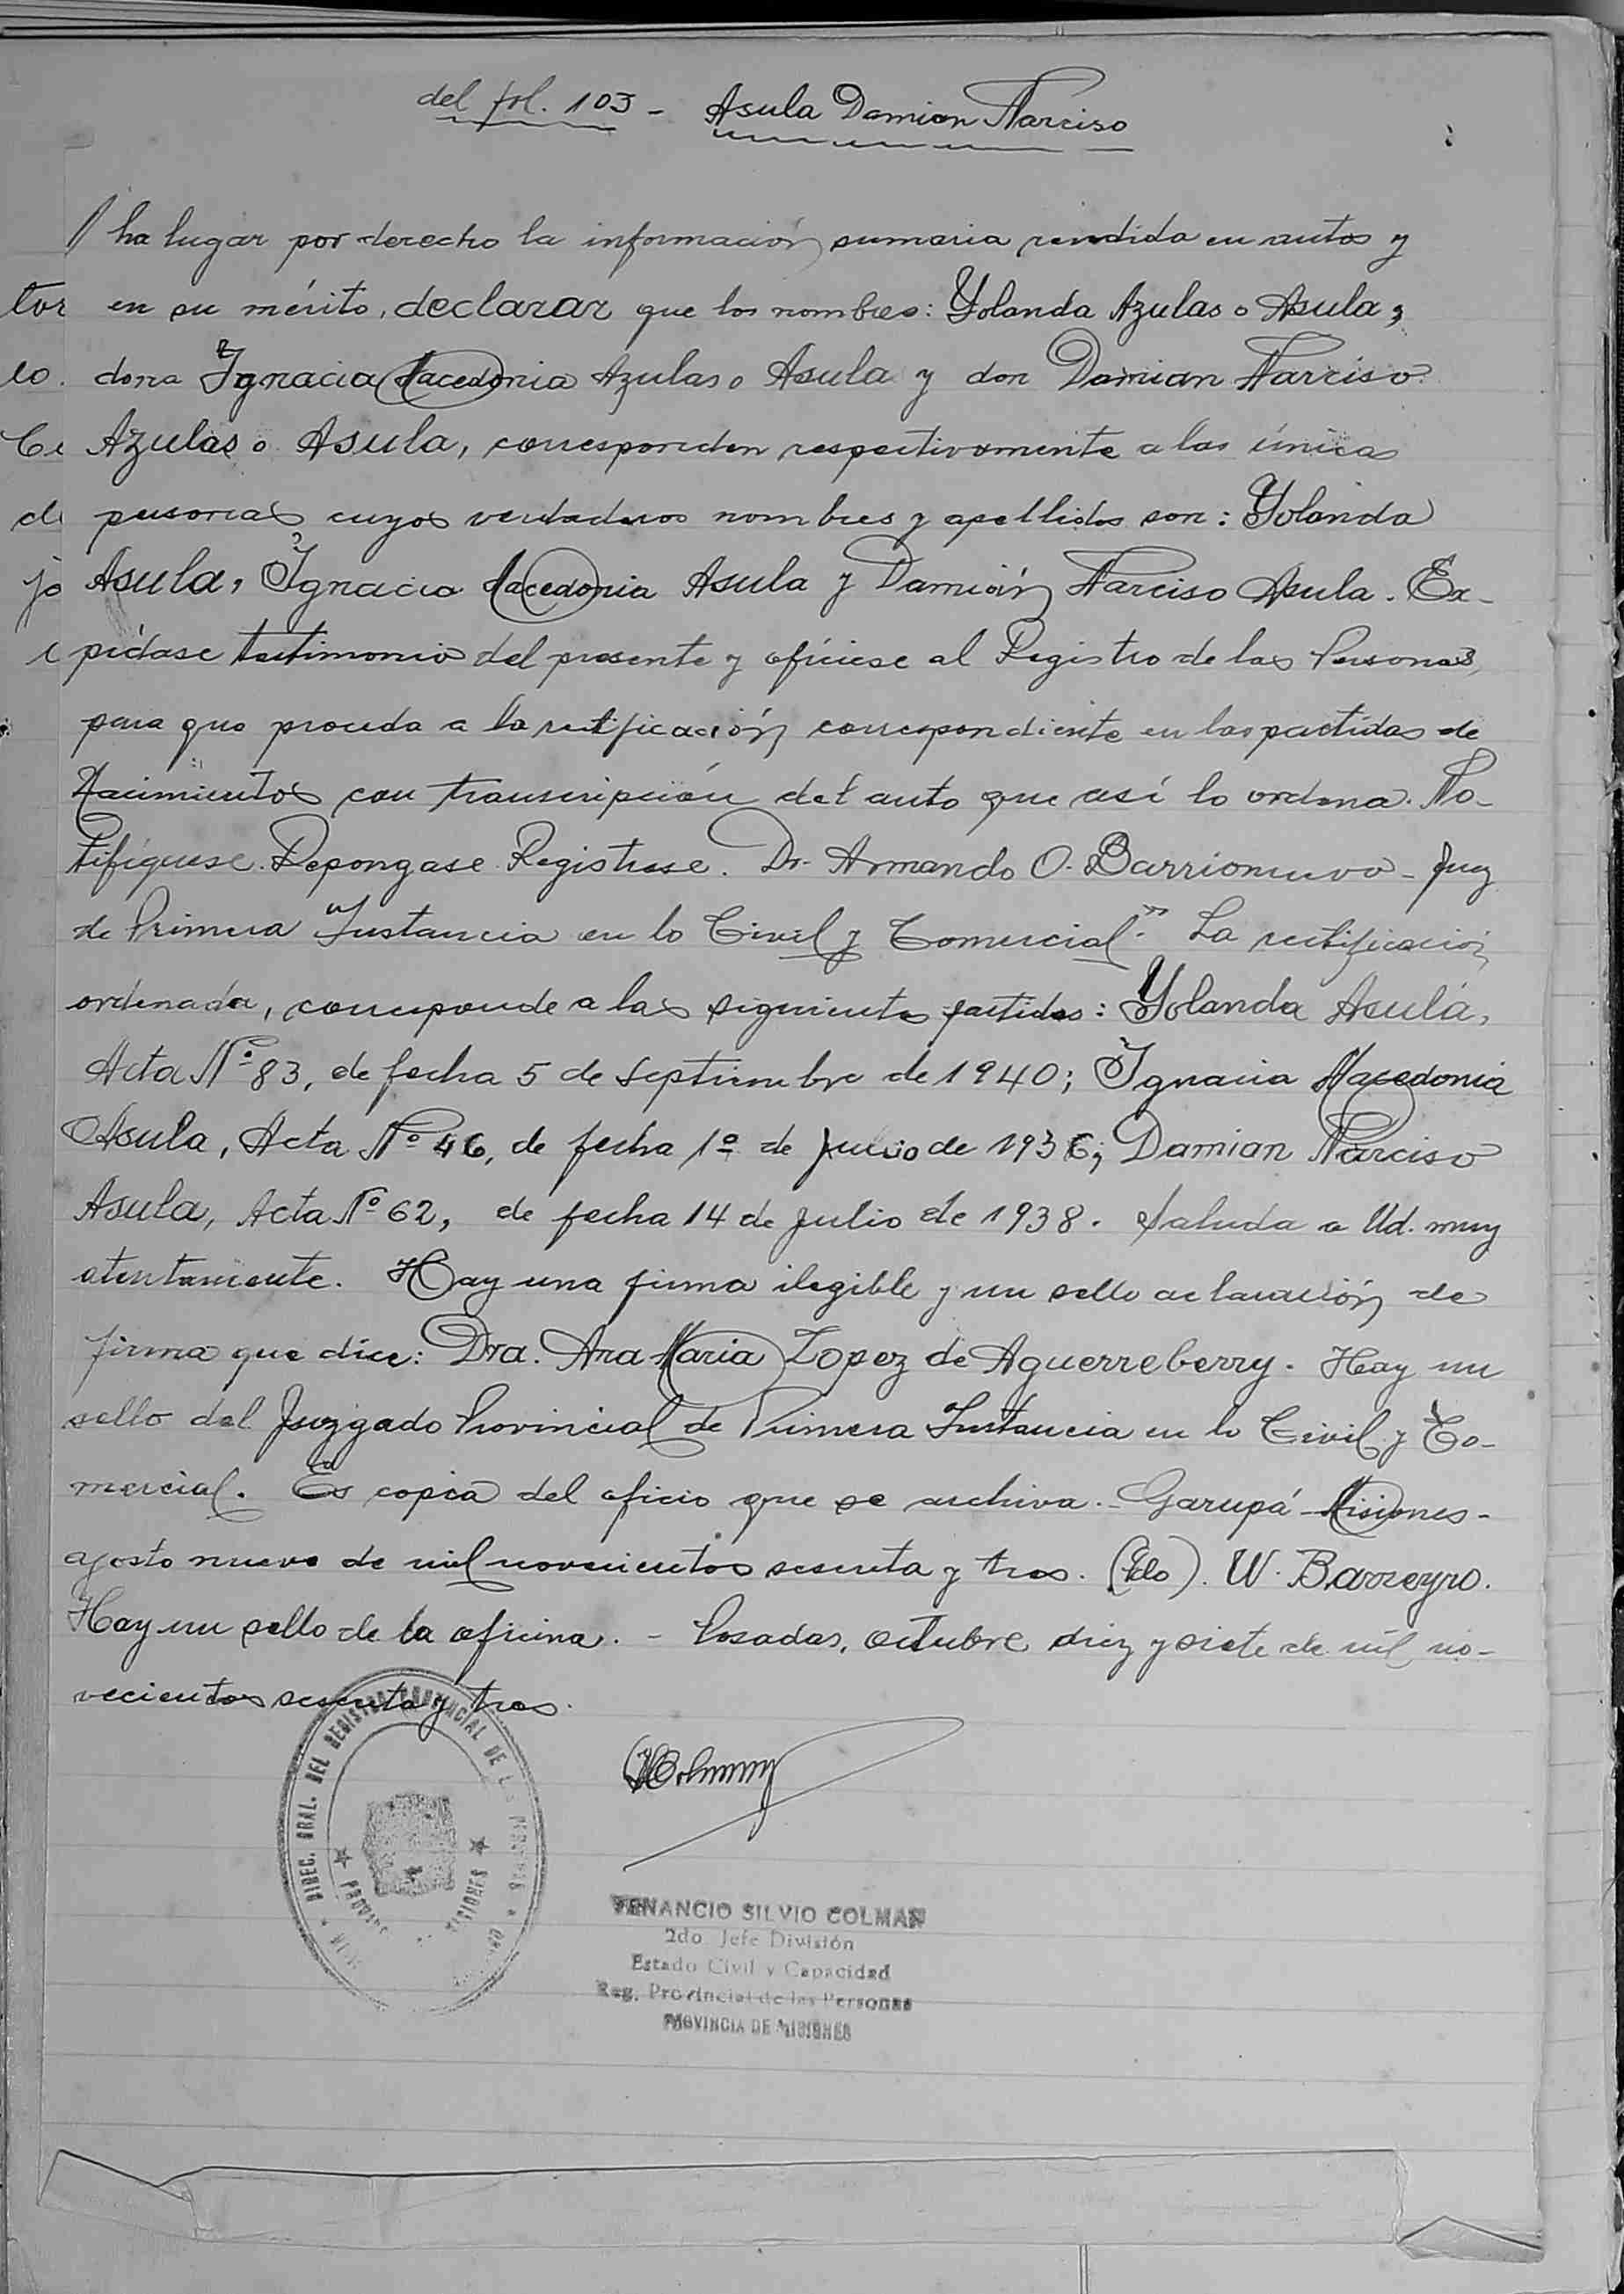 del fol. 103 - Asula Damian Narciso
ha lugar por derecho la información sumaria rendida en autos y
tor
en su mérito, declarar que los nombres: Yolanda Azulas o Asula,
lo.
dona Ygnacia Macedonia Azulas o Asula y don Damian Narciso
Azulas o Asula, corresponden respectivamente a las únicas
personas cuyos verdaderos nombres y apellidos son: Yolanda
jo
Asula, Ygnacia Macedonia Asula y Damián Narciso Asula. Ex-
pídase testimonio del presente y ofíciese al Registro de las Personas,
para que proceda a la rectificación correspondiente en las partidas de
Nacimientos con transcripción del auto que así lo ordena. No-
tifíquese. Repongase. Registrese. Dr. Armando O. Barrionuevo - Juez
de Primera Instancia en lo Civil y Comercial". La rectificación
ordenada, corresponde a las siguientes partidas: Yolanda Asula,
Acta Nº 83, de fecha 5 de Septiembre de 1940; Ygnacia Macedonia
Asula, Acta Nº 46, de fecha 1º de de 1936; Damian Narciso
Asula, Acta Nº 62, de fecha 14 de Julio de 1938. Saluda a Ud. muy
atentamente. Hay una firma ilegible y un sello aclaración de
firma que dice: Dra. Ana Maria Lopez de Aguerreberry. Hay un
sello del Juzgado Provincial de Primera Instancia en lo Civil y Co-
mercial. Es copia del oficio que se archiva. - Garupá - Misiones -
agosto nueve de mil novecientos sesenta y tres. (Fdo). W. Barreyro.
Hay un sello de la oficina. - Posadas, octubre diez y siete de mil no-
vecientos sesenta y tres.
DIREC. GRAL. DEL REGISTRO PROVINCIAL DE LAS PERSONAS
PROVINCIA MISIONES
VENANCIO SILVIO COLMAN
2do. Jefe División
Estado Civil y Capacidad
Reg. Provincial de las Personas
PROVINCIA DE MISIONES